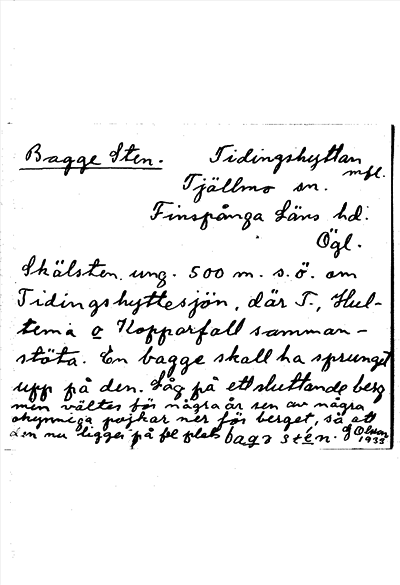 Bagge Sten. Tidingshyttan
mfl.
Tjällmo sn.
Finspånga Läns hd.
Ögl.
Skälsten ung. 500 m. s.ö. om
Tidingshyttesjön, där T., Hul-
tema o Kopparfall samman-
stöta. En bagge skall ha sprunget
upp på den. Låg på ett sluttande berg
men vältes för några år sen av några
okynniga pojkar ner för berget, så att
den nu ligger på fel plats baga stén. G Olson
1935